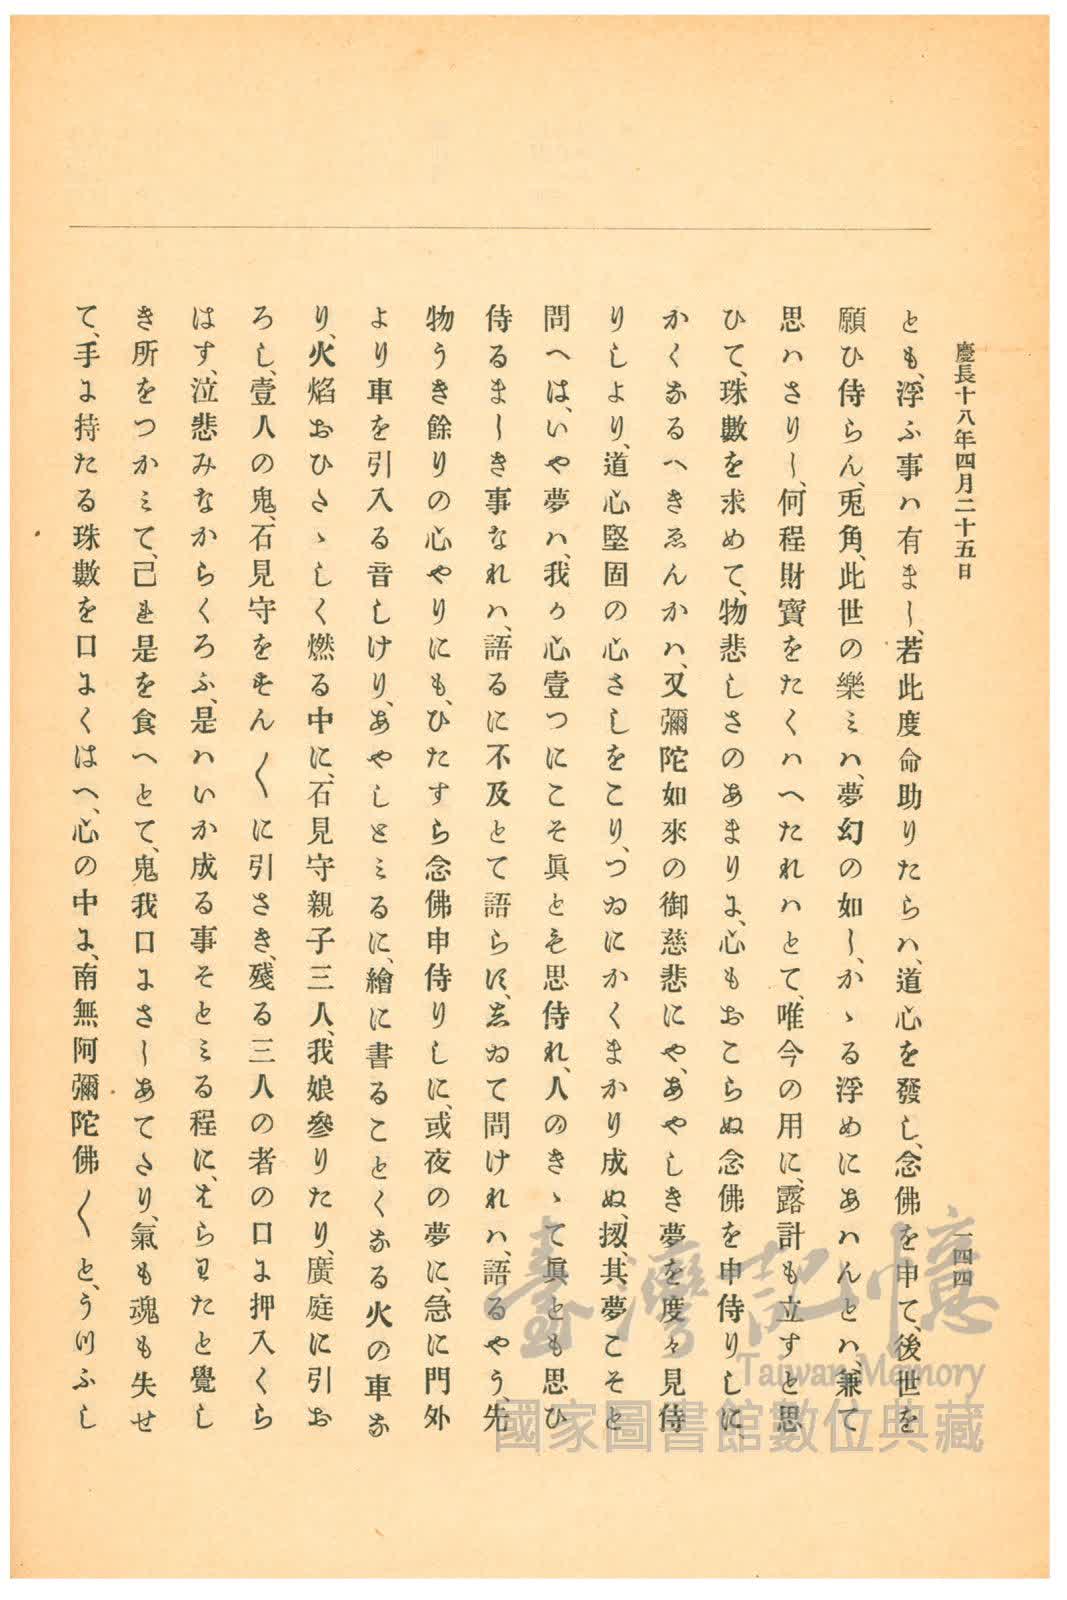 慶長十八年四月二十五日
一四四
とも、浮ふ事ハ有まし、若此度命助りたらハ、道心を發し、念佛を申て、後世を
願ひ侍らん、兎角、此世の樂ミハ、夢幻の如し、かゝる浮めにあハんとハ、兼て
思ハさりし、何程財寶をたくハへたれハとて、唯今の用に、露計も立すと思
ひて、珠數を求めて、物悲しさのあまりに、心もおこらぬ念佛を申侍りしに、
かくなるへきゑんかハ、又彌陀如來の御慈悲にや、あやしき夢を度々見侍
りしより、道心堅固の心さしをこり、つゐにかくまかり成ぬ、扨、其夢こそと
問へは、いや夢ハ、我か心壹つにこそ眞とも思侍れ、人のきゝて眞とも思ひ
侍るましき事なれハ、語るに不及とて語らす、志ゐて問けれハ、語るやう、先
物うき餘りの心やりにも、ひたすら念佛申侍りしに、或夜の夢に、急に門外
より車を引入る音しけり、あやしとミるに、繪に書ることくなる火の車な
り、火焰おひさゝしく燃る中に、石見守親子三人、我娘參りたり、廣庭に引お
ろし、壹人の鬼、石見守をすん〱に引さき、殘る三人の者の口に押入くら
はす、泣悲みなからくろふ、是ハいか成る事そとミる程に、はらわたと覺し
き所をつかミて、己も是を食へとて、鬼我口にさしあてたり、氣も魂も失せ
て、手に持たる珠數を口にくはへ、心の中に、南無阿彌陀佛〱と、うつふし
臺灣記憶
Taiwan Memory
國家圖書館數位典藏